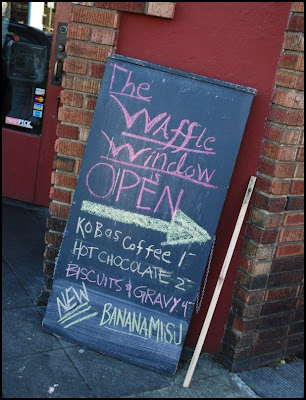 The
Waffle
Window
is
OPEN
KOBOS Coffee 1-
HOT CHOCOLATE 2-
BISCUITS & GRAVY 4-
NEW BANANAMISU